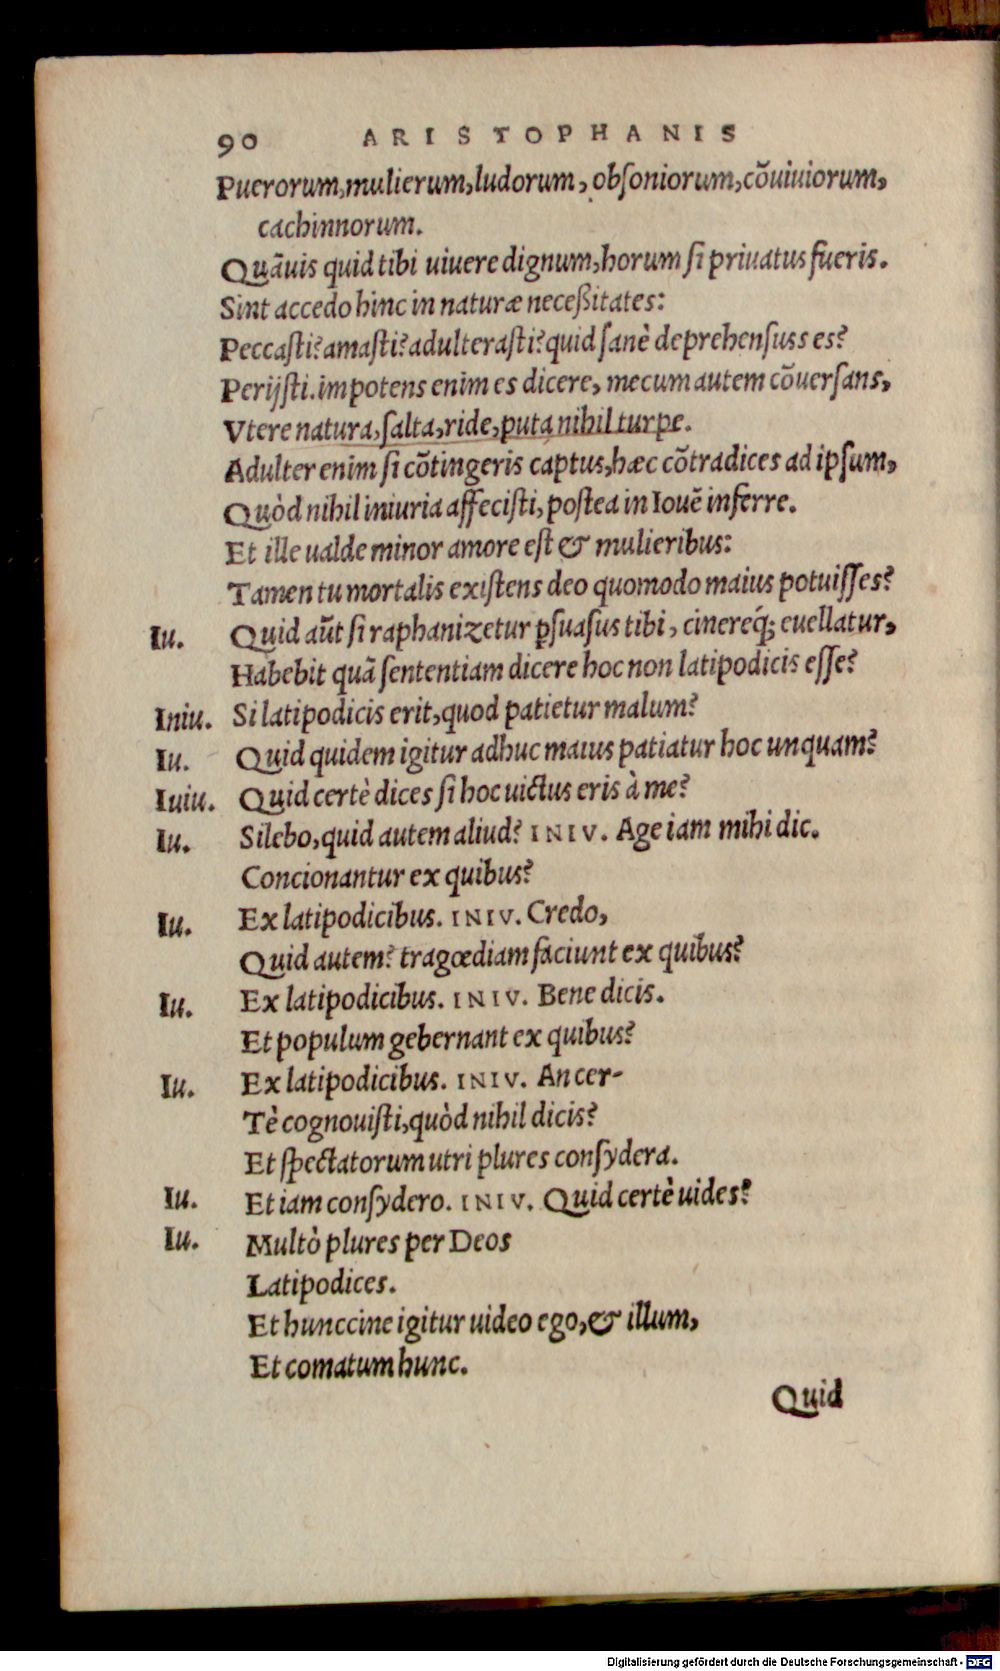 90 ARISTOPHANIS
Puerorum, mulierum, ludorum, obſoniorum, cõuiuiorum,
cachinnorum.
Quãuis quid tibi uiuere dignum, horum ſi priuatus fueris.
Sint accedo hinc in naturæ neceßitates:
Peccaſti? amaſti? adulteraſti? quid ſanè deprehenſuss es?
Perijſti. impotens enim es dicere, mecum autem cõuerſans,
Vtere natura, ſalta, ride, puta nihil turpe.
Adulter enim ſi cõtingeris captus, hæc cõtradices ad ipſum,
Quòd nihil iniuria affeciſti, poſtea in Iouẽ inferre.
Et ille ualde minor amore eſt & mulieribus:
Tamen tu mortalis exiſtens deo quomodo maius potuiſſes?
Iu. Quid aũt ſi raphanizetur ꝑſuaſus tibi, cinereq́; euellatur,
Habebit quã ſententiam dicere hoc non latipodicis eſſe?
Iniu. Si latipodicis erit, quod patietur malum?
Iu. Quid quidem igitur adhuc maius patiatur hoc unquam?
Iuiu. Quid certè dices ſi hoc uictus eris à me?
Iu. Silebo, quid autem aliud? INIV. Age iam mihi dic.
Concionantur ex quibus?
Iu. Ex latipodicibus. INIV. Credo,
Quid autem? tragœdiam faciunt ex quibus?
Iu. Ex latipodicibus. INIV. Bene dicis.
Et populum gebernant ex quibus?
Iu. Ex latipodicibus. INIV. An cer-
Tè cognouiſti, quòd nihil dicis?
Et ſpectatorum utri plures conſydera.
Iu. Et iam conſydero. INIV. Quid certè uides?
Iu. Multò plures per Deos
Latipodices.
Et hunccine igitur uideo ego, & illum,
Et comatum hunc.
Quid
Digitalisierung gefördert durch die Deutsche Forschungsgemeinschaft - DFG